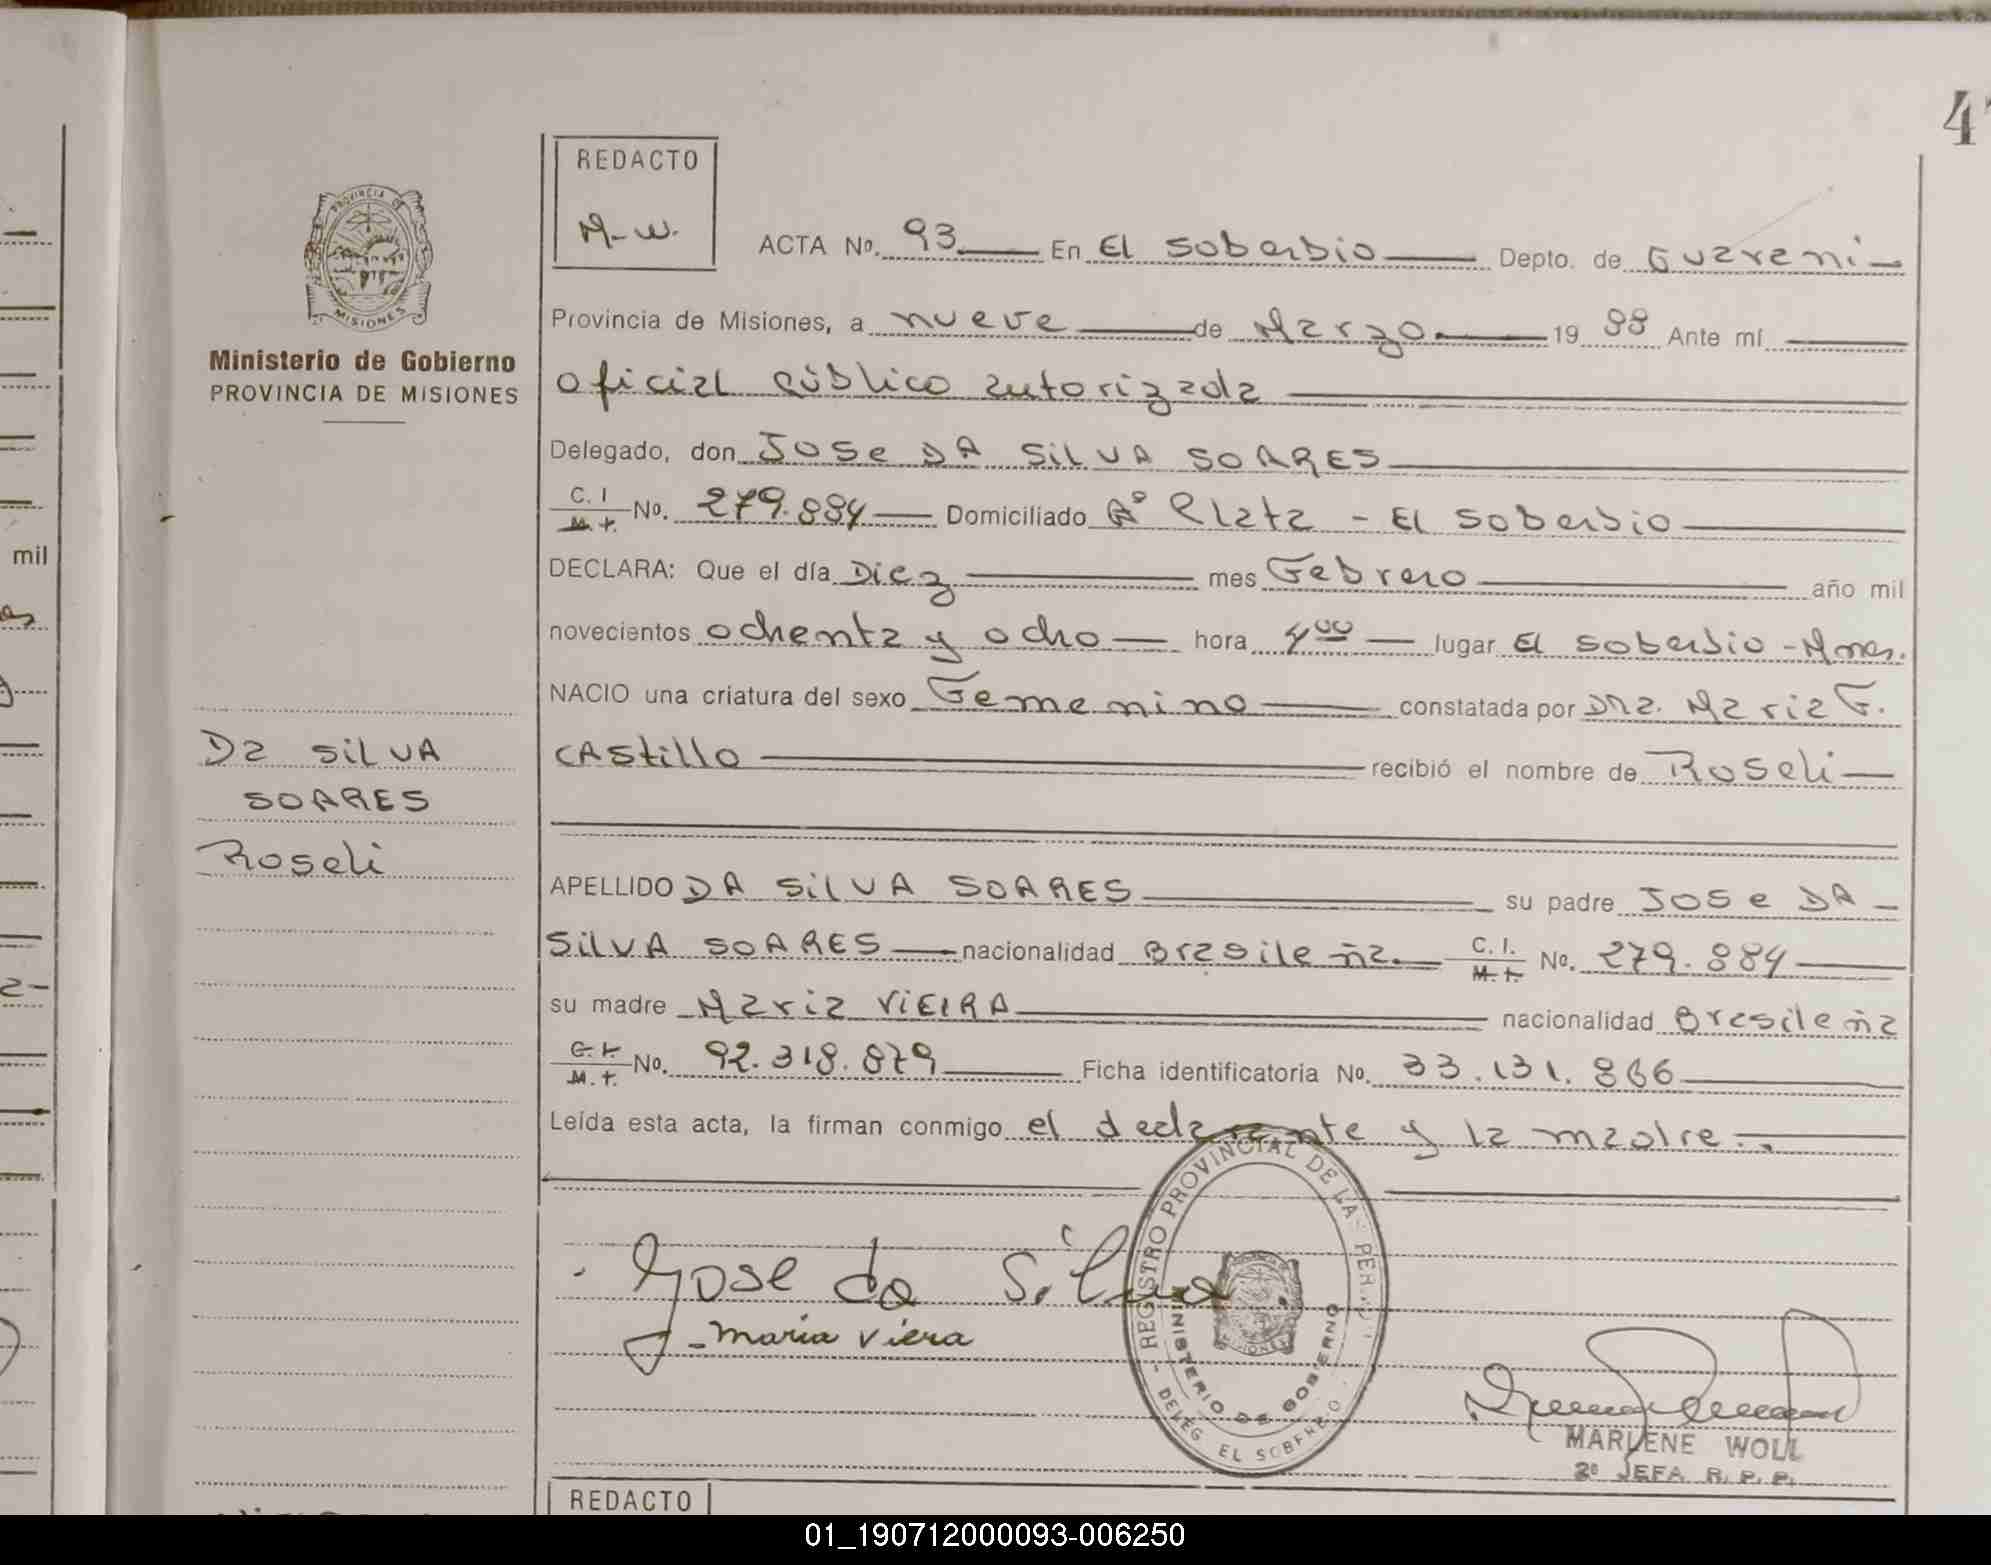 47
REDACTO
M-W.
PROVINCIA DE
MISIONES
Ministerio de Gobierno
PROVINCIA DE MISIONES
ACTA Nº. 93 En El Soberbio Depto. de Guarani
Provincia de Misiones, a nueve de Marzo 19 88 Ante mí
oficial público autorizada
Delegado, don Jose DA SILVA SOARES
C. I / M. I. No. 279.884 Domiciliado Aº Plata - El Soberbio
DECLARA: Que el día Diez mes Febrero año mil
novecientos ochenta y ocho hora 4 00 lugar El Soberbio - Mnes.
NACIO una criatura del sexo Femenino constatada por Dra. Maria G.
CAStillo recibió el nombre de Roseli
DA SILVA
SOARES
Roseli
APELLIDO DA SILVA SOARES su padre Jose DA
SILVA SOARES nacionalidad Brasileña. C. I. / M. I. Nº. 279.884
su madre Maria VIEIRA nacionalidad Brasileña
C. I. / M. I. No. 92.318.879 Ficha identificatoria Nº. 33.131.866
Leída esta acta, la firman conmigo el declarante y la madre.
Jose da Silva
- maria viera
REGISTRO PROVINCIAL DE LAS PERS.
MINISTERIO DE GOBIERNO
DELEG. EL SOBERBIO
MARLENE WOLL
2º JEFA R. P. P.
REDACTO
mil
01_190712000093-006250